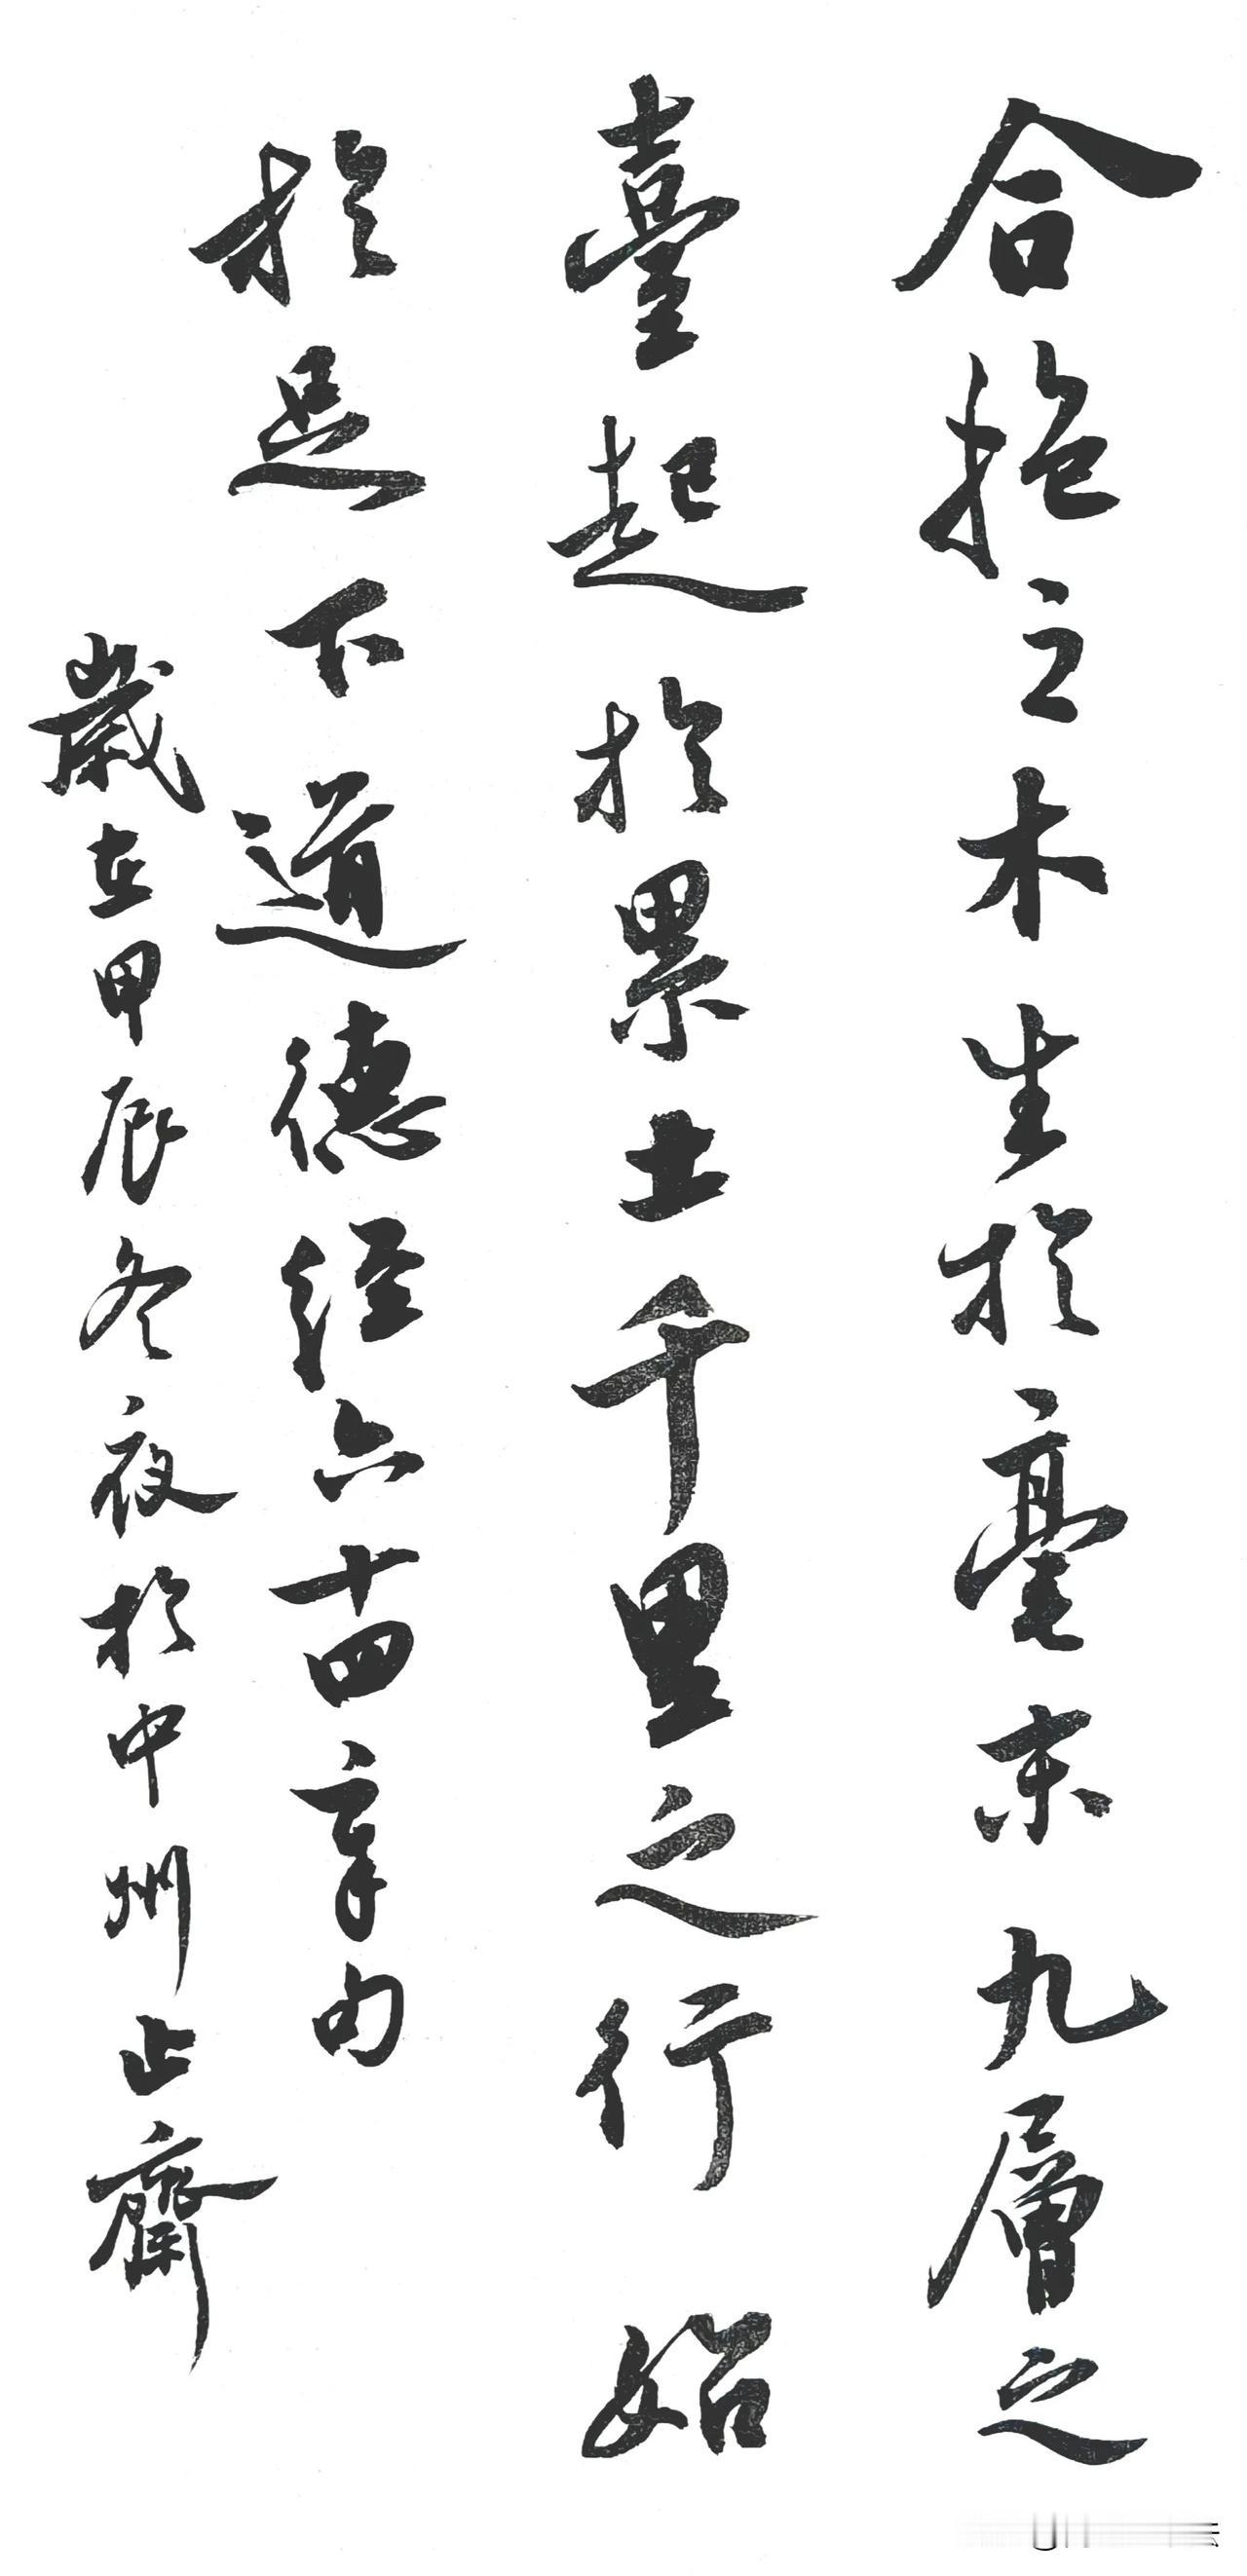 合抱之木生於毫末九層之
臺起於累土千里之行始
於足下道德经六十四章句
歲在甲辰冬夜於中州止齋